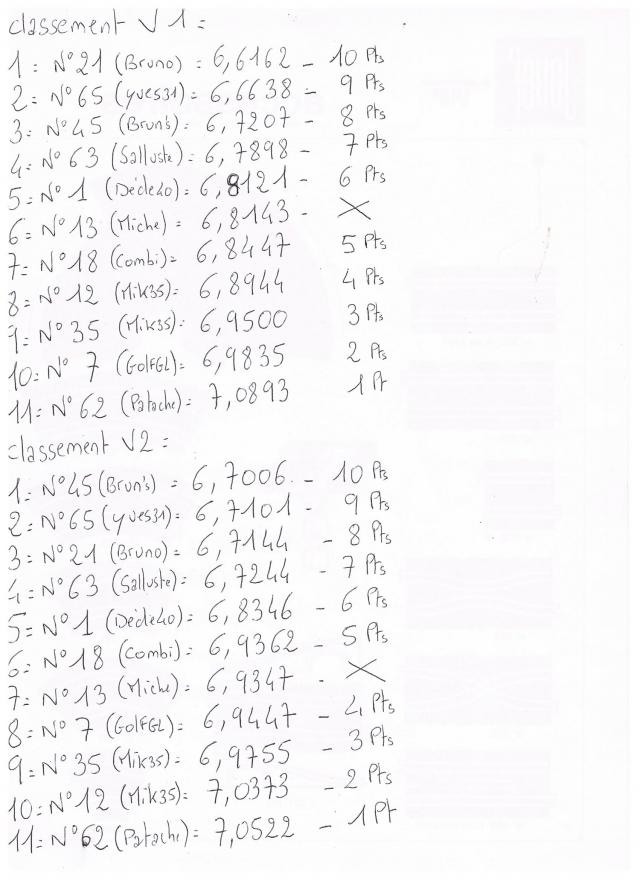 classement V1 =
1 = N°21 (Bruno) = 6,6162 - 10 Pts
2 = N°65 (yves31) = 6,6638 - 9 Pts
3 = N°45 (Brun's) = 6,7207 - 8 Pts
4 = N°63 (Salluste) = 6,7898 - 7 Pts
5 = N°1 (Décle40) = 6,8121 - 6 Pts
6 = N°13 (Miche) = 6,8143 - X
7 = N°18 (Combi) = 6,8447 5 Pts
8 = N°12 (Mik35) = 6,8944 4 Pts
9 = N°35 (Mik35) = 6,9500 3 Pts
10 = N°7 (GolfGL) = 6,9835 2 Pts
11 = N°62 (Patache) = 7,0893 1 Pt
classement V2 =
1 = N°45 (Brun's) = 6,7006 - 10 Pts
2 = N°65 (yves31) = 6,7101 - 9 Pts
3 = N°21 (Bruno) = 6,7144 - 8 Pts
4 = N°63 (Salluste) = 6,7244 - 7 Pts
5 = N°1 (Décle40) = 6,8346 - 6 Pts
6 = N°18 (Combi) = 6,9362 - 5 Pts
7 = N°13 (Miche) = 6,9347 - X
8 = N°7 (GolfGL) = 6,9447 - 4 Pts
9 = N°35 (Mik35) = 6,9755 - 3 Pts
10 = N°12 (Mik35) = 7,0373 - 2 Pts
11 = N°62 (Patache) = 7,0522 - 1 Pt